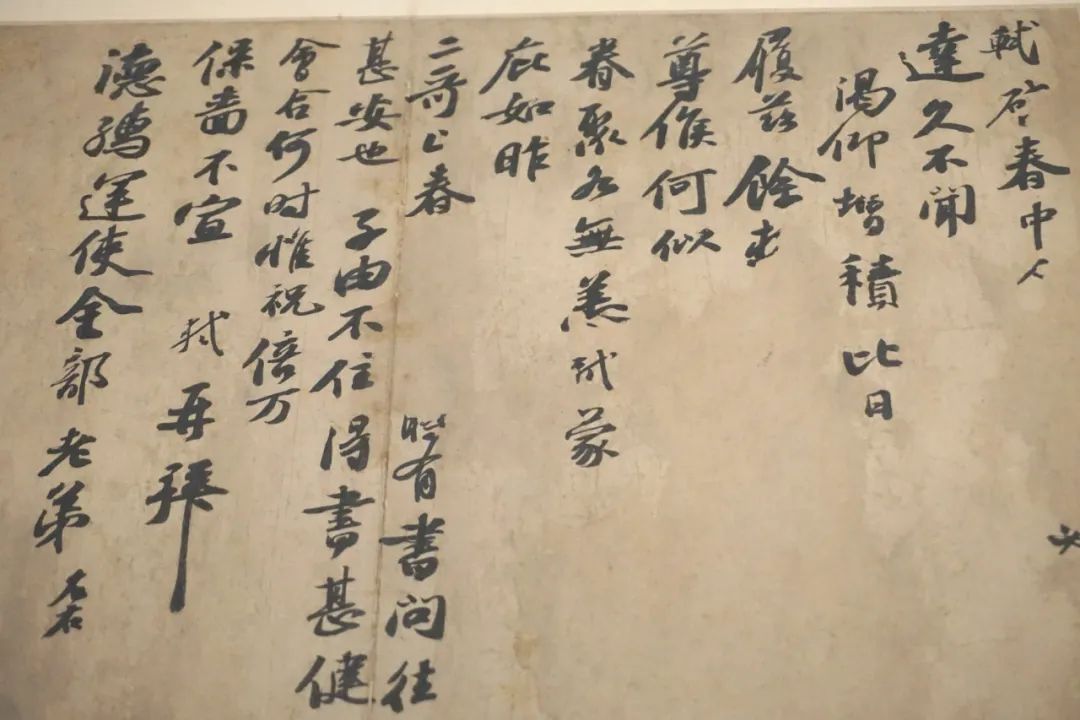 軾啓春中人
達久不聞
渴仰增積比日
履兹餘
尊候何似
眷聚各無恙軾蒙
庇如昨
二哥上春有書問往
甚安也子由不住得書甚健
會合何时惟祝倍万
保嗇不宣軾再拜
德孺運使金部老弟左右